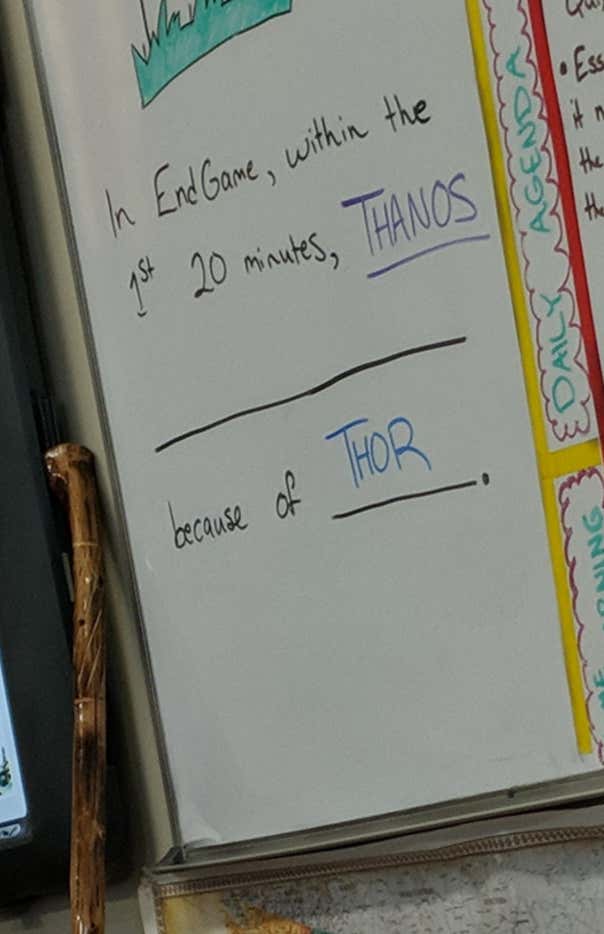 In EndGame, within the
1st 20 minutes, THANOS
because of THOR.
DAILY AGENDA
• Ess
it n
the